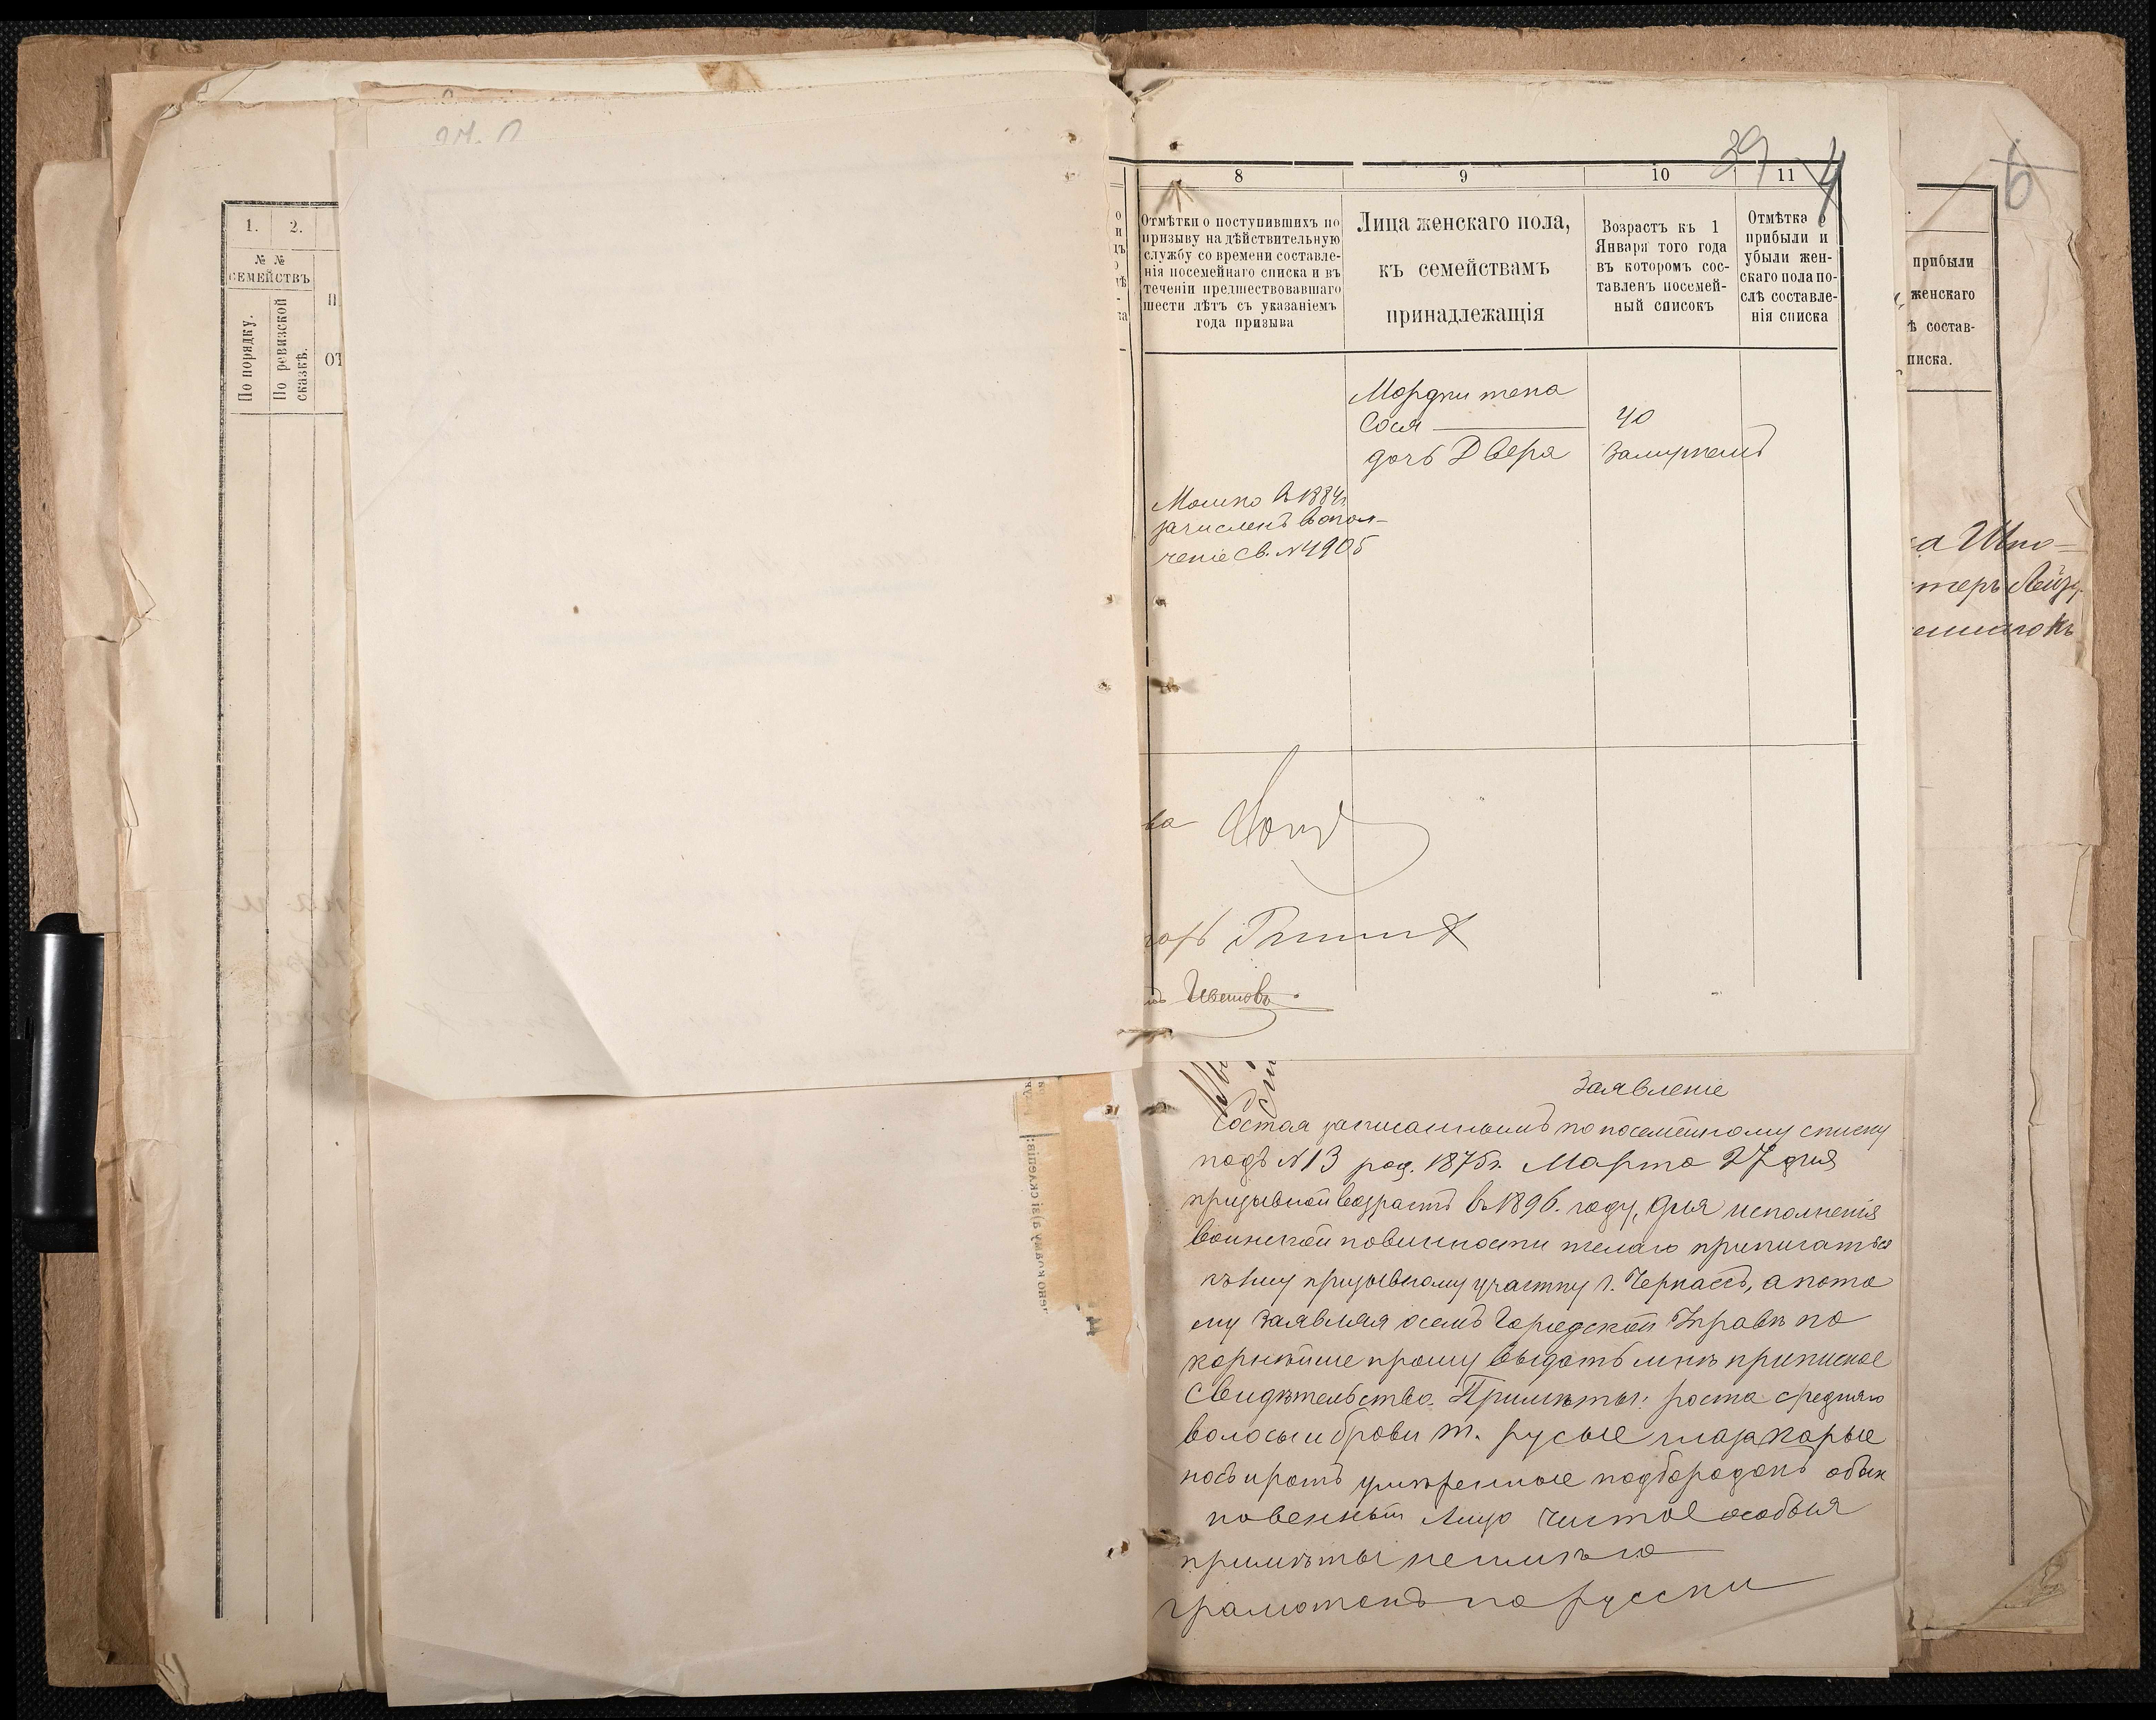 1. 2.
№ №
СЕМЕЙСТВЪ
По порядку.
По ревизской
сказкѣ.
39 4
8 9 10 11
Отмѣтки о поступившихъ по
призыву на дѣйствительную
службу со времени составле-
нія посемейнаго списка и въ
теченіи предшествовавшаго
шести лѣтъ съ указаніемъ
года призыва
Лица женскаго пола,
къ семействамъ
принадлежащія
Возрастъ къ 1
Января того года
въ которомъ сос-
тавленъ посемей-
ный списокъ
Отмѣтка о
прибыли и
убыли жен-
скаго пола по-
слѣ составле-
нія списка
Мордки жена
Сося 40
дочь Двера замужемъ
Мошко въ 1884 г.
зачисленъ въ опол-
ченіе св. № 4905
6
прибыли
женскаго
ѣ состав-
писка.
Заявленіе
Состоя записаннымъ по посемейному списку
подъ № 13 род. 1875 г. Марта 27 дня
призывной возрастъ въ 1896. году, для исполненія
воинской повинности желаю приписаться
къ 1му призывному участку г. Черкассъ, а пото
му заявляя осемъ Городской Управѣ по
корнѣйше прошу выдать мнѣ приписное
Свидѣтельство. Примѣты: роста средняго
волосы и брови т. русые глаза карые
носъ и ротъ умѣренные подбородокъ обык
новенный лицо чистое особыя
примѣты неимѣю
грамотенъ по русски